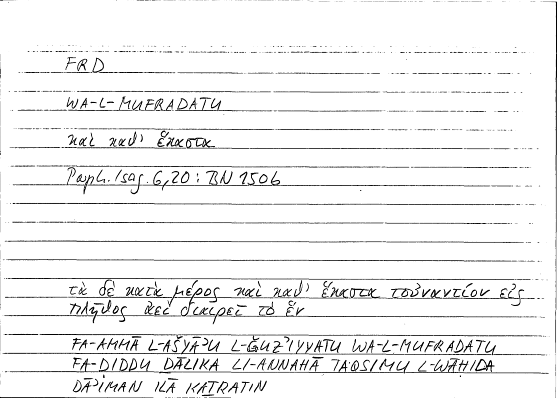 FRD
WA-L-MUFRADATU
καὶ καθ' ἕκαστα
Porph. Isag. 6,20 : BN 150b
τὰ δὲ κατὰ μέρος καὶ καθ' ἕκαστα τοὐναντίον εἰς
πλῆθος ἀεὶ διαιρεῖ τὸ ἕν
FA-AMMĀ L-AŠYĀʾU L-ǦUZʾIYYATU WA-L-MUFRADATU
FA-ḌIDDU ḎĀLIKA LI-ANNAHĀ TAQSIMU L-WĀḤIDA
DĀʾIMAN ILĀ KAṮRATIN